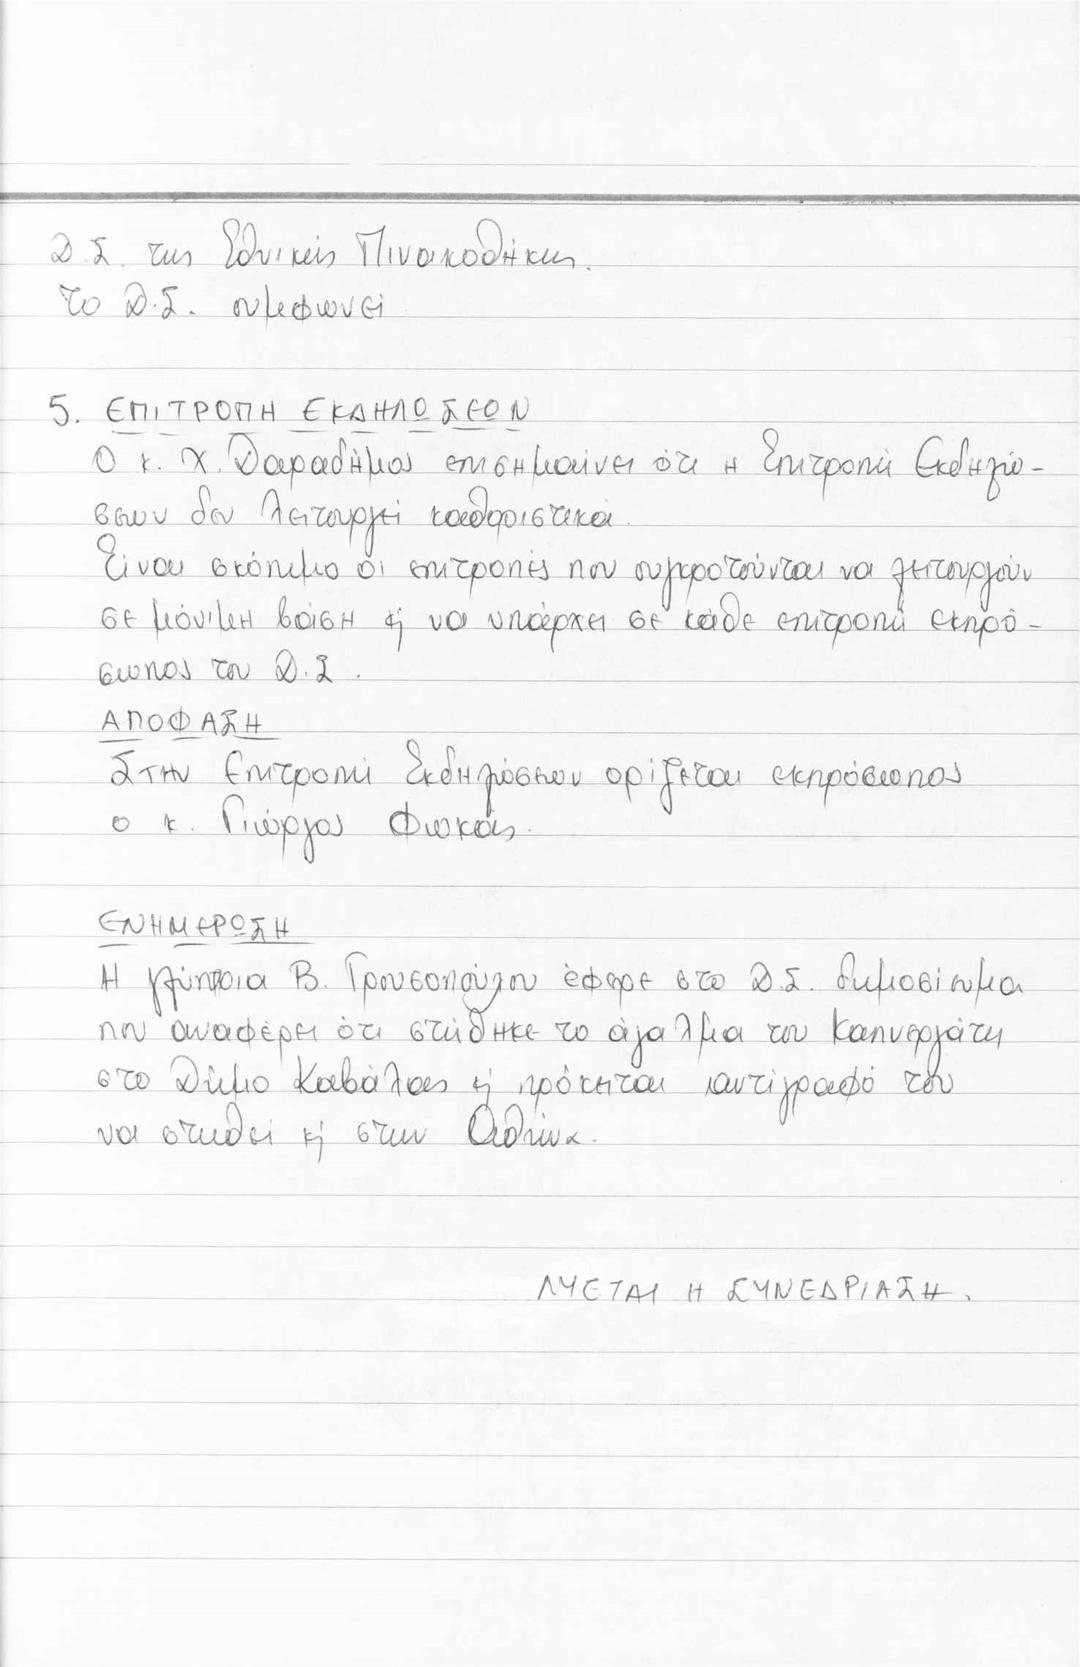 Δ.Σ. της Εθνικής Πινακοθήκης.
το Δ.Σ. συμφωνεί
5. ΕΠΙΤΡΟΠΗ ΕΚΔΗΛΩΣΕΩΝ
Ο κ. Χ. Δαραδήμος επισημαίνει ότι η Επιτροπή Εκδηλώ-
σεων δεν λειτουργεί καθοριστικά.
Είναι σκόπιμο οι επιτροπές που συγκροτούνται να λειτουργούν
σε μόνιμη βάση κ' να υπάρχει σε κάθε επιτροπή εκπρό-
σωπος του Δ.Σ.
ΑΠΟΦΑΣΗ
Στην Επιτροπή Εκδηλώσεων ορίζεται εκπρόσωπος
ο κ. Γιώργος Φωκάς.
ΕΝΗΜΕΡΩΣΗ
Η γλύπτρια Β. Γρουσοπούλου έφερε στο Δ.Σ. δημοσίευμα
που αναφέρει ότι στήθηκε το άγαλμα του Καπνεργάτη
στο Δήμο Καβάλας κ' πρόκειται αντίγραφό του
να στηθεί κ' στην Αθήνα.
ΛΥΕΤΑΙ Η ΣΥΝΕΔΡΙΑΣΗ.